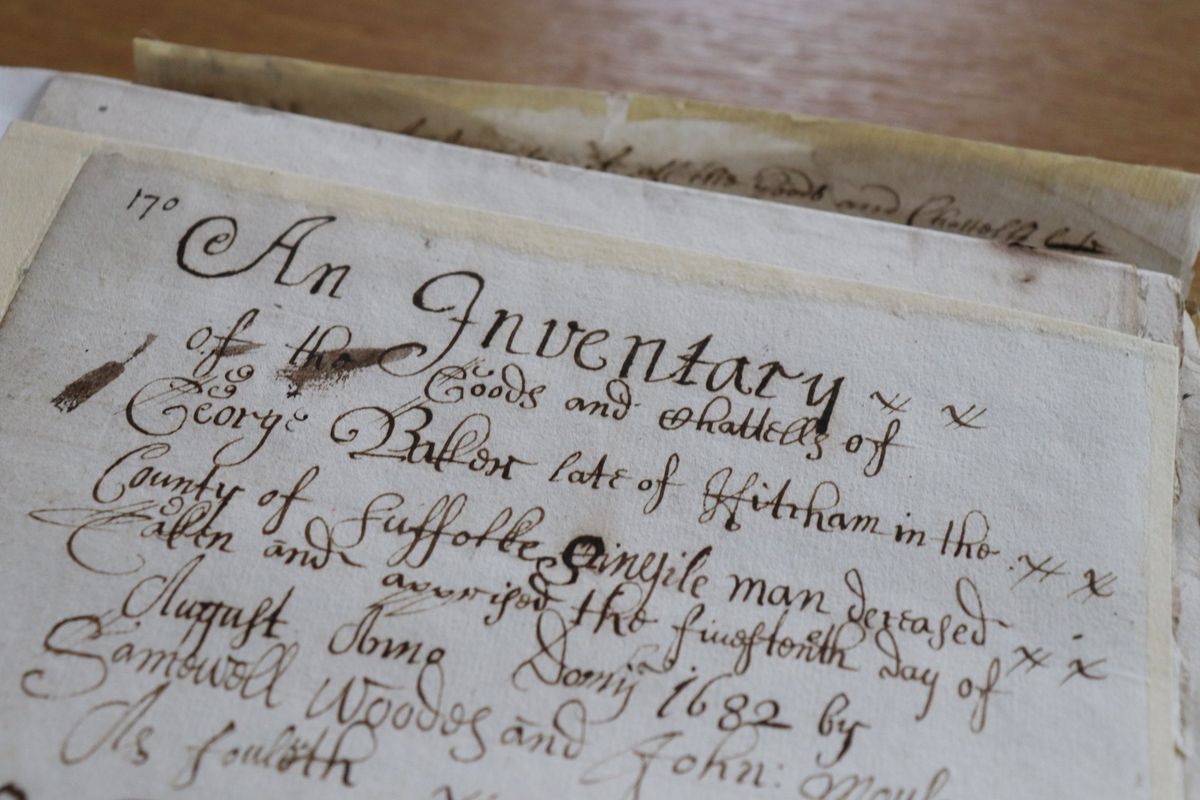 and Chattells
170
An Inventary
of the Goods and Chattells of
George Baker late of Hitcham in the
County of Suffolke Singile man deceased
Taken and apprised the fivefteenth day of
August Anno Domij 1682 by
Samewell Woodes and John:
As fouleth